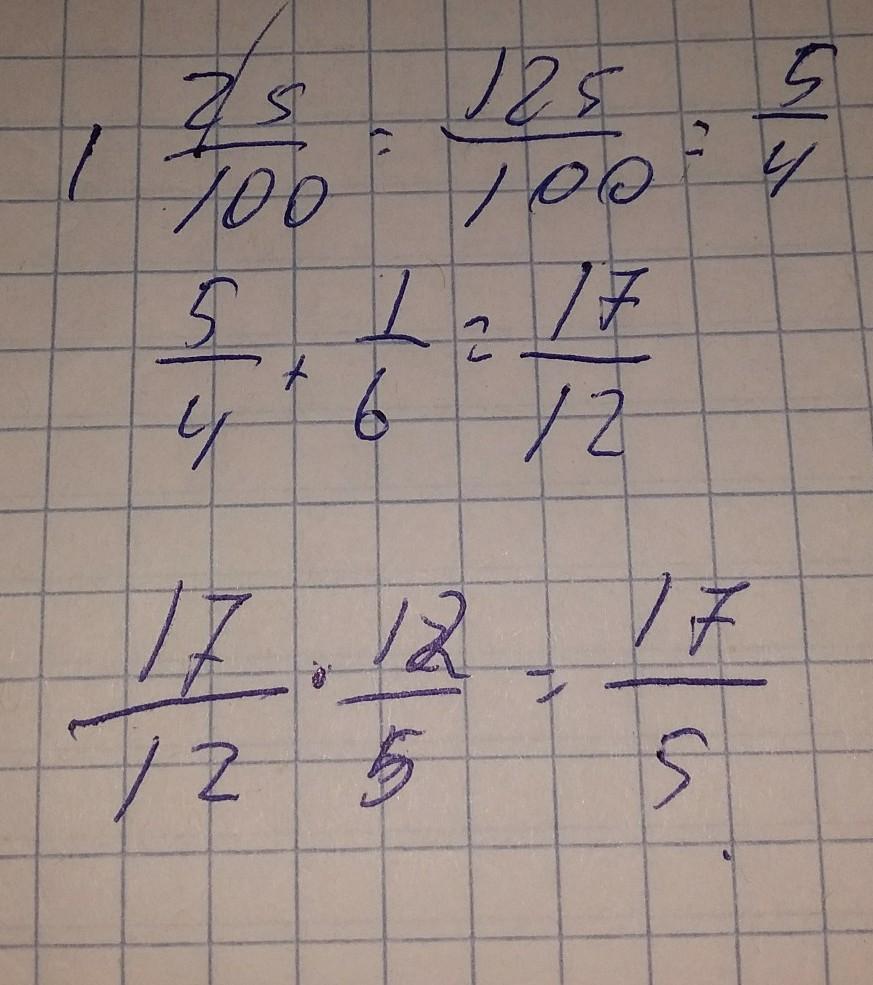 1 25/100 = 125/100 = 5/4
5/4 + 1/6 = 17/12
17/12 · 12/5 = 17/5